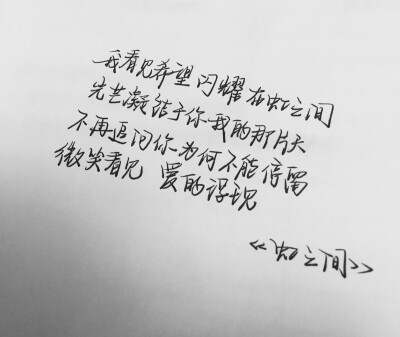 我看见希望闪耀在虹之间
光芒凝结于你我的那片天
不再追问你为何不能停留
微笑看见 爱的浮现
《虹之间》